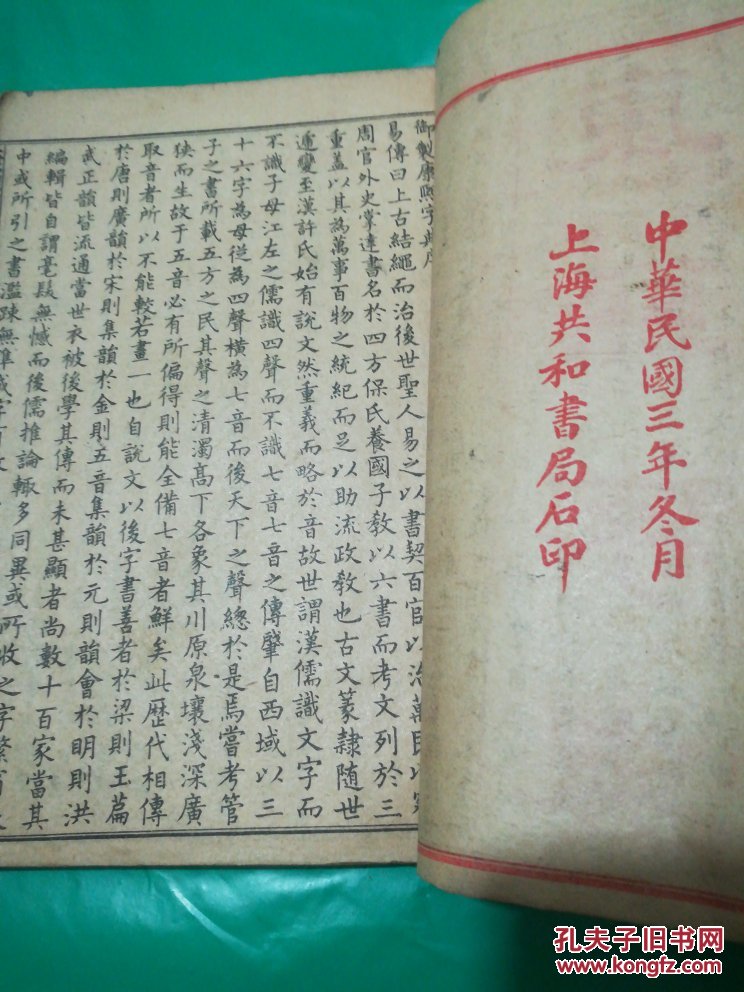 中華民國三年冬月
上海共和書局石印
御製康熙字典序
易傳曰上古結繩而治後世聖人易之以書契百官以治萬民以察
周官外史掌達書名於四方保氏養國子教以六書而考文列於三
重蓋以其為萬事百物之統紀而足以助流政教也古文篆隸隨世
遞變至漢許氏始有說文然重義而略於音故世謂漢儒識文字而
不識子母江左之儒識四聲而不識七音七音之傳肇自西域以三
十六字為母從為四聲橫為七音而後天下之聲總於是焉嘗考管
子之書所載五方之民其聲之清濁高下各象其川原泉壤淺深廣
狹而生故于五音必有所偏得則能全備七音者鮮矣此歷代相傳
取音者所以不能較若畫一也自說文以後字書善者於梁則玉篇
於唐則廣韻於宋則集韻於金則五音集韻於元則韻會於明則洪
武正韻皆流通當世衣被後學其傳而未甚顯者尚數十百家當其
編輯皆自謂毫髮無憾而後儒推論輒多同異或所收之字繁省
中或所引之書濫疎無準或字有數
孔夫子旧书网
kongfz.com